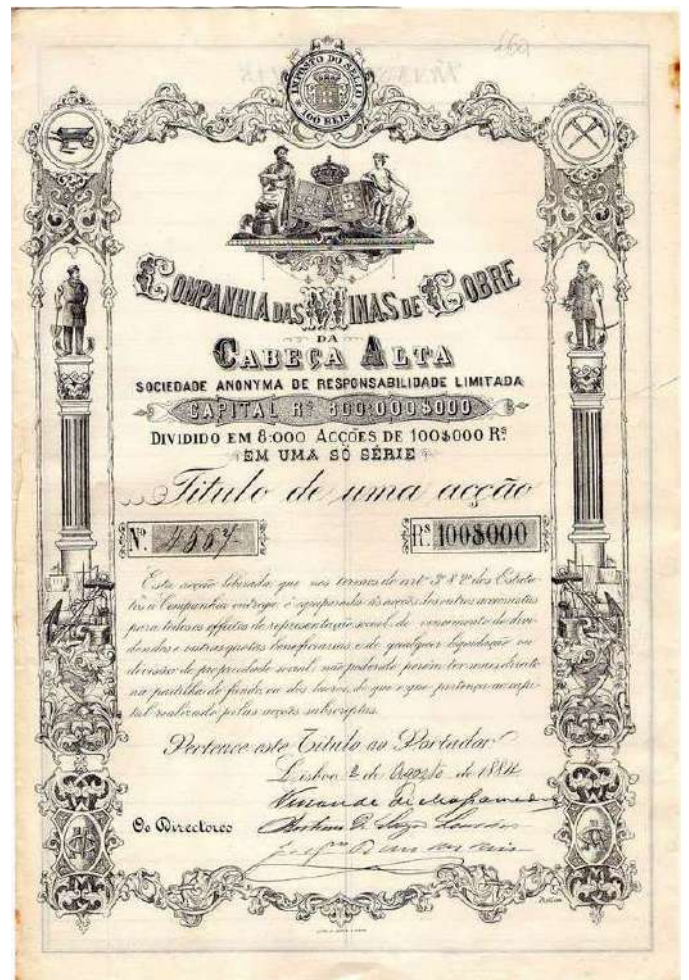 IMPOSTO DO SELLO
100 REIS
COMPANHIA DAS MINAS DE COBRE
DA
CABEÇA ALTA
SOCIEDADE ANONYMA DE RESPONSABILIDADE LIMITADA
CAPITAL Rs 800:000$000
DIVIDIDO EM 8:000 ACÇÕES DE 100$000 Rs
EM UMA SÓ SÉRIE
Titulo de uma acção
No. 4567
Rs 100$000
Esta acção liberada, que nos termos do art. 3º § 2º dos Estatu-
tos a Companhia entrega, é equiparada ás acções dos outros accionistas
para todos os effeitos de representação social, de vencimento de divi-
dendos e outras quotas beneficiarias e de qualquer liquidação ou
devisão de propriedade social, não podendo porém ter mais direito
na partilha do fundo, ou dos lucros, do que o que pertença ao capi-
tal realisado pelas acções subscriptas.
Pertence este Titulo ao Portador
Lisboa 2 de Agosto de 1884
Os Directores